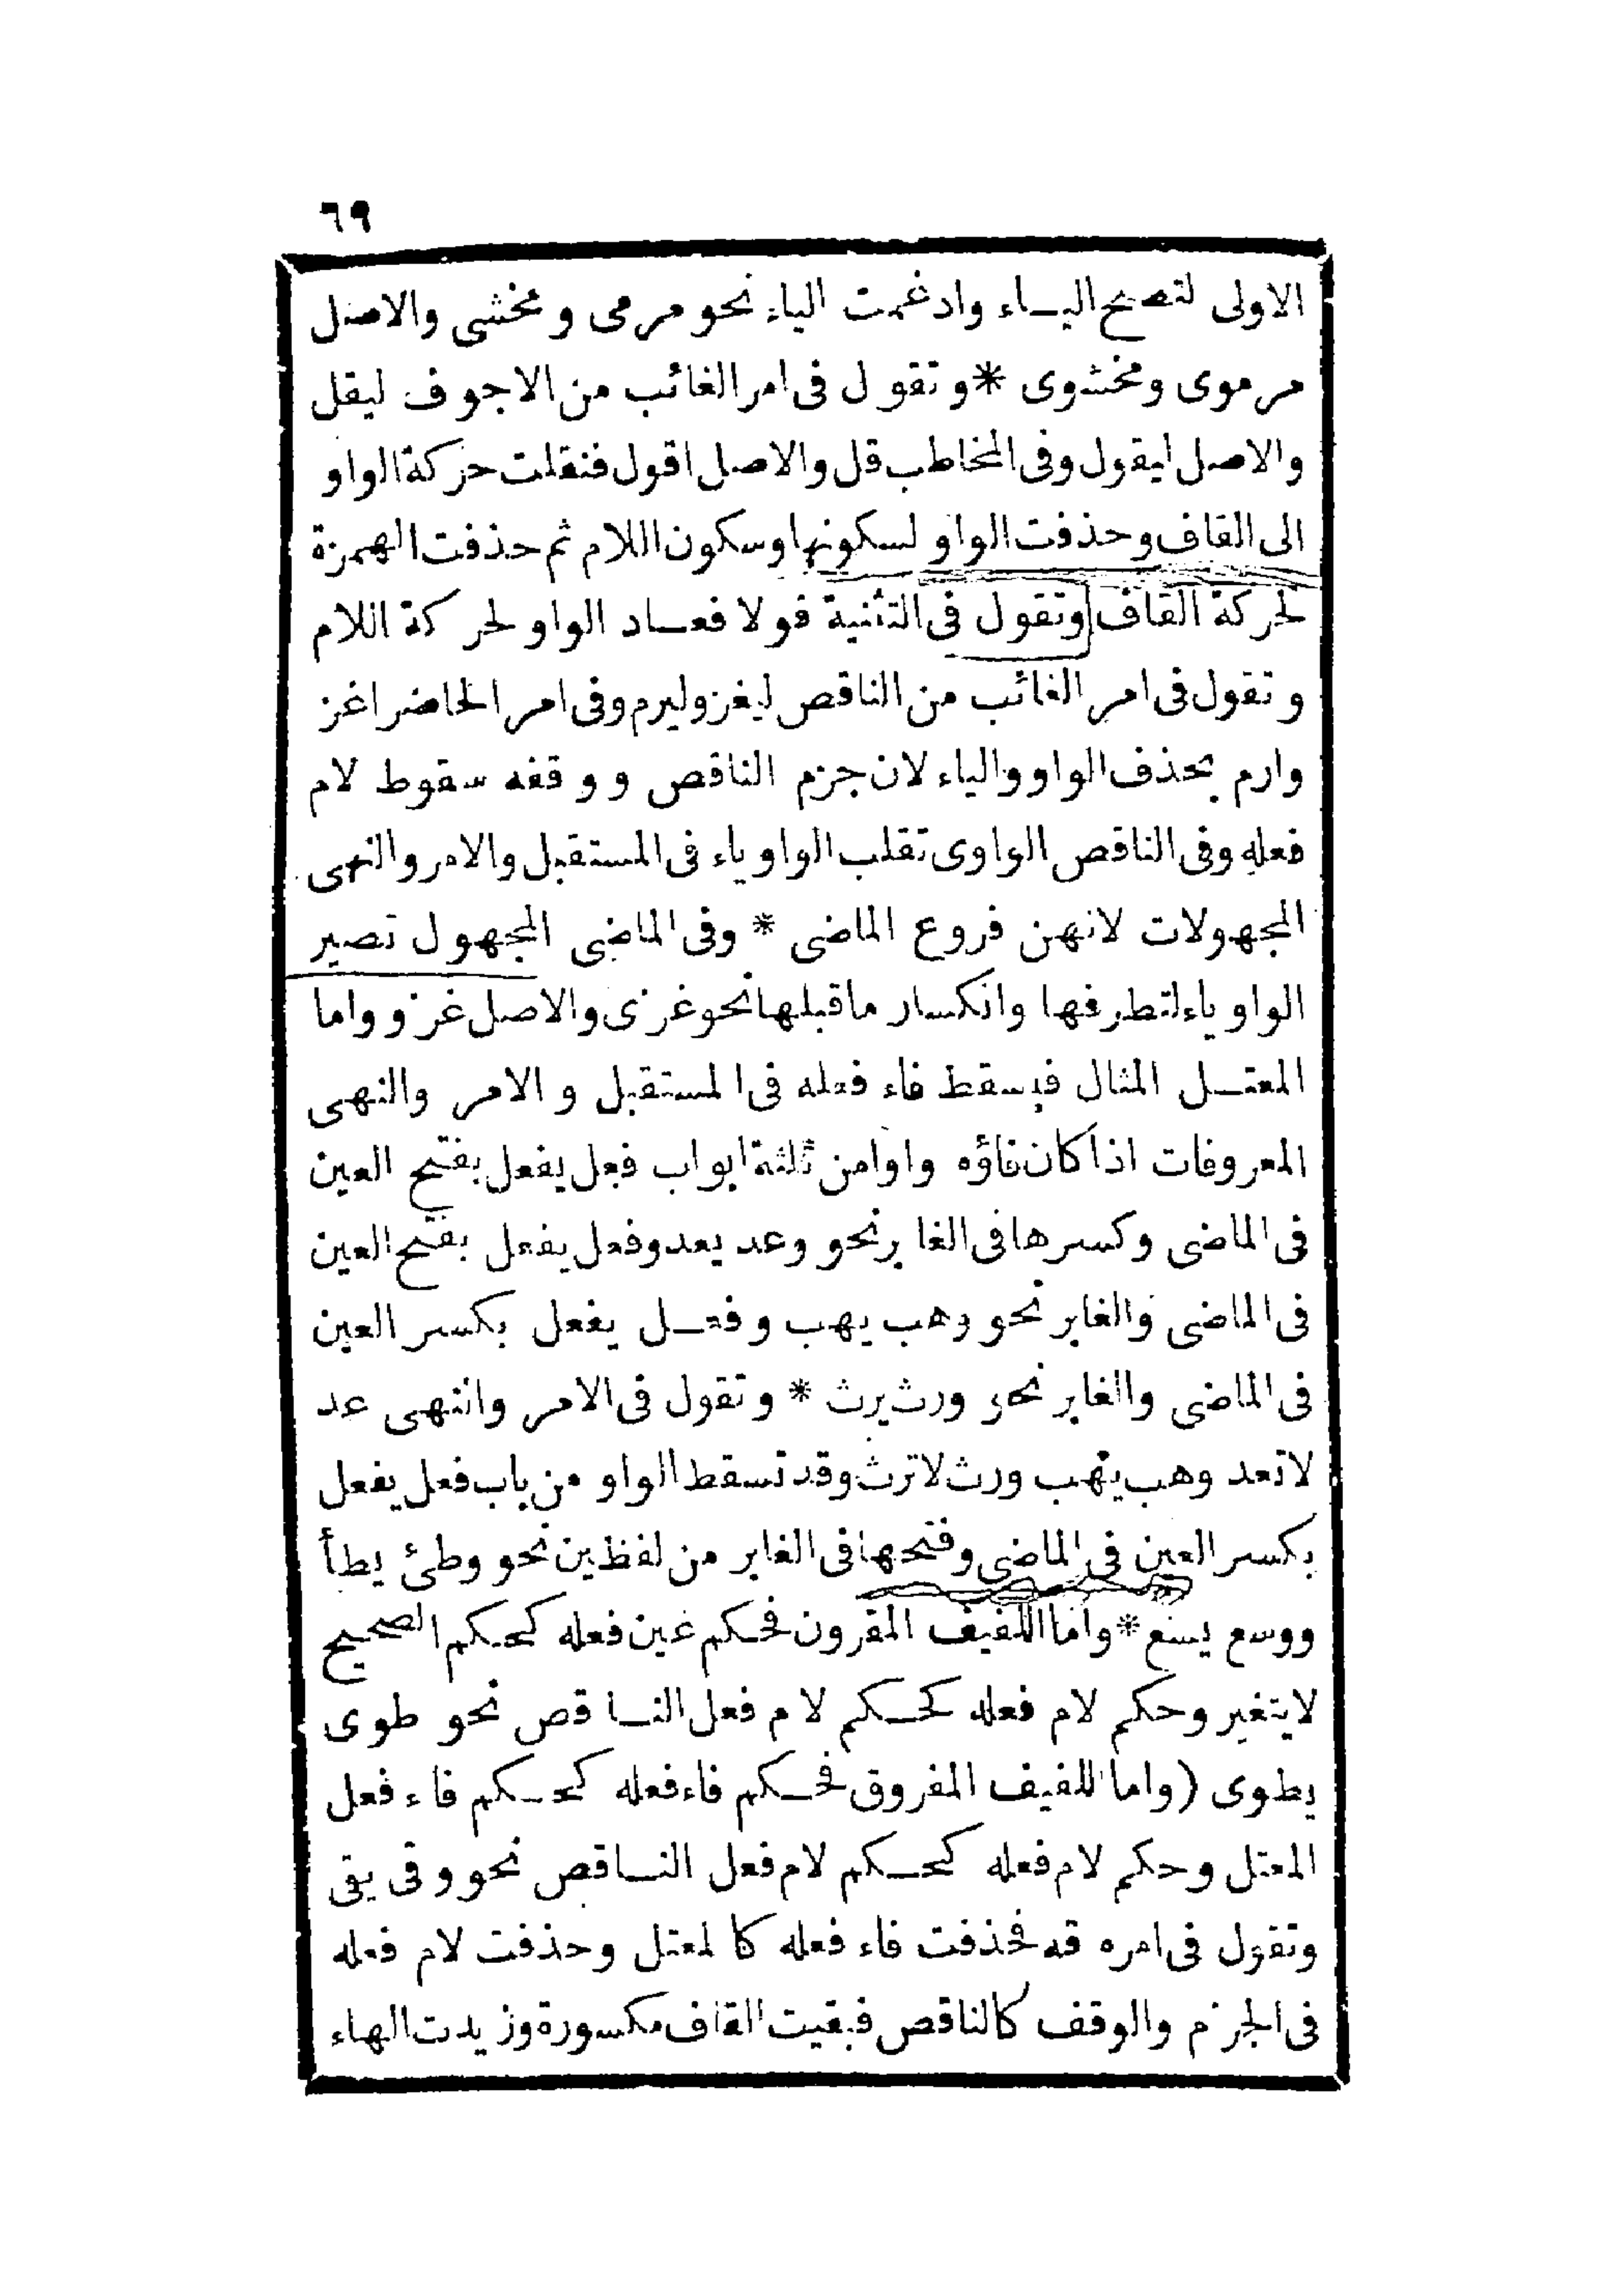 ٦٩
الاولى لتصح اليــاء وادغمت الياء نحو مرمى ومخشى والاصل
مرموى ومخشوى * وتقول فى امر الغائب من الاجوف ليقل
والاصل ليقول وفى المخاطب قل والاصل اقول فنقلت حركة الواو
الى القاف وحذفت الواو لسكونها وسكون اللام ثم حذفت الهمزة
لحركة القاف وتقول فى التثنية قولا فعـاد الواو لحركة اللام
وتقول فى امر الغائب من الناقص ليغز وليرم وفى امر الحاضر اغز
وارم بحذف الواو والياء لان جزم الناقص ووقفه سقوط لام
فعله وفى الناقص الواوى تقلب الواو ياء فى المستقبل والامر والنهى
المجهولات لانهن فروع الماضى * وفى الماضى المجهول تصير
الواو ياء لتطرفها وانكسار ماقبلها نحو غزى والاصل غزو واما
المعتــل المثال فيسقط فاء فعله فى المستقبل والامر والنهى
المعروفات اذا كان فاؤه واوا من ثلثة ابواب فعل يفعل بفتح العين
فى الماضى وكسرها فى الغابر نحو وعد يعد وفعل يفعل بفتح العين
فى الماضى والغابر نحو وهب يهب وفعــل يفعل بكسر العين
فى الماضى والغابر نحو ورث يرث * وتقول فى الامر والنهى عد
لاتعد وهب تهب ورث لاترث وقد تسقط الواو من باب فعل يفعل
بكسر العين فى الماضى وفتحها فى الغابر من لفظين نحو وطئ يطأ
ووسع يسع * واما اللفيف المقرون فحكم عين فعله كحكم الصحيح
لايتغير وحكم لام فعله كحـكم لام فعل النـاقص نحو طوى
يطوى (واما اللفيف المفروق فحـكم فاء فعله كحـكم فاء فعل
المعتل وحكم لام فعله كحـكم لام فعل النـاقص نحو وقى يقى
وتقول فى امره قه فحذفت فاء فعله كالمعتل وحذفت لام فعله
فى الجزم والوقف كالناقص فبقيت القاف مكسورة وزيدت الهاء